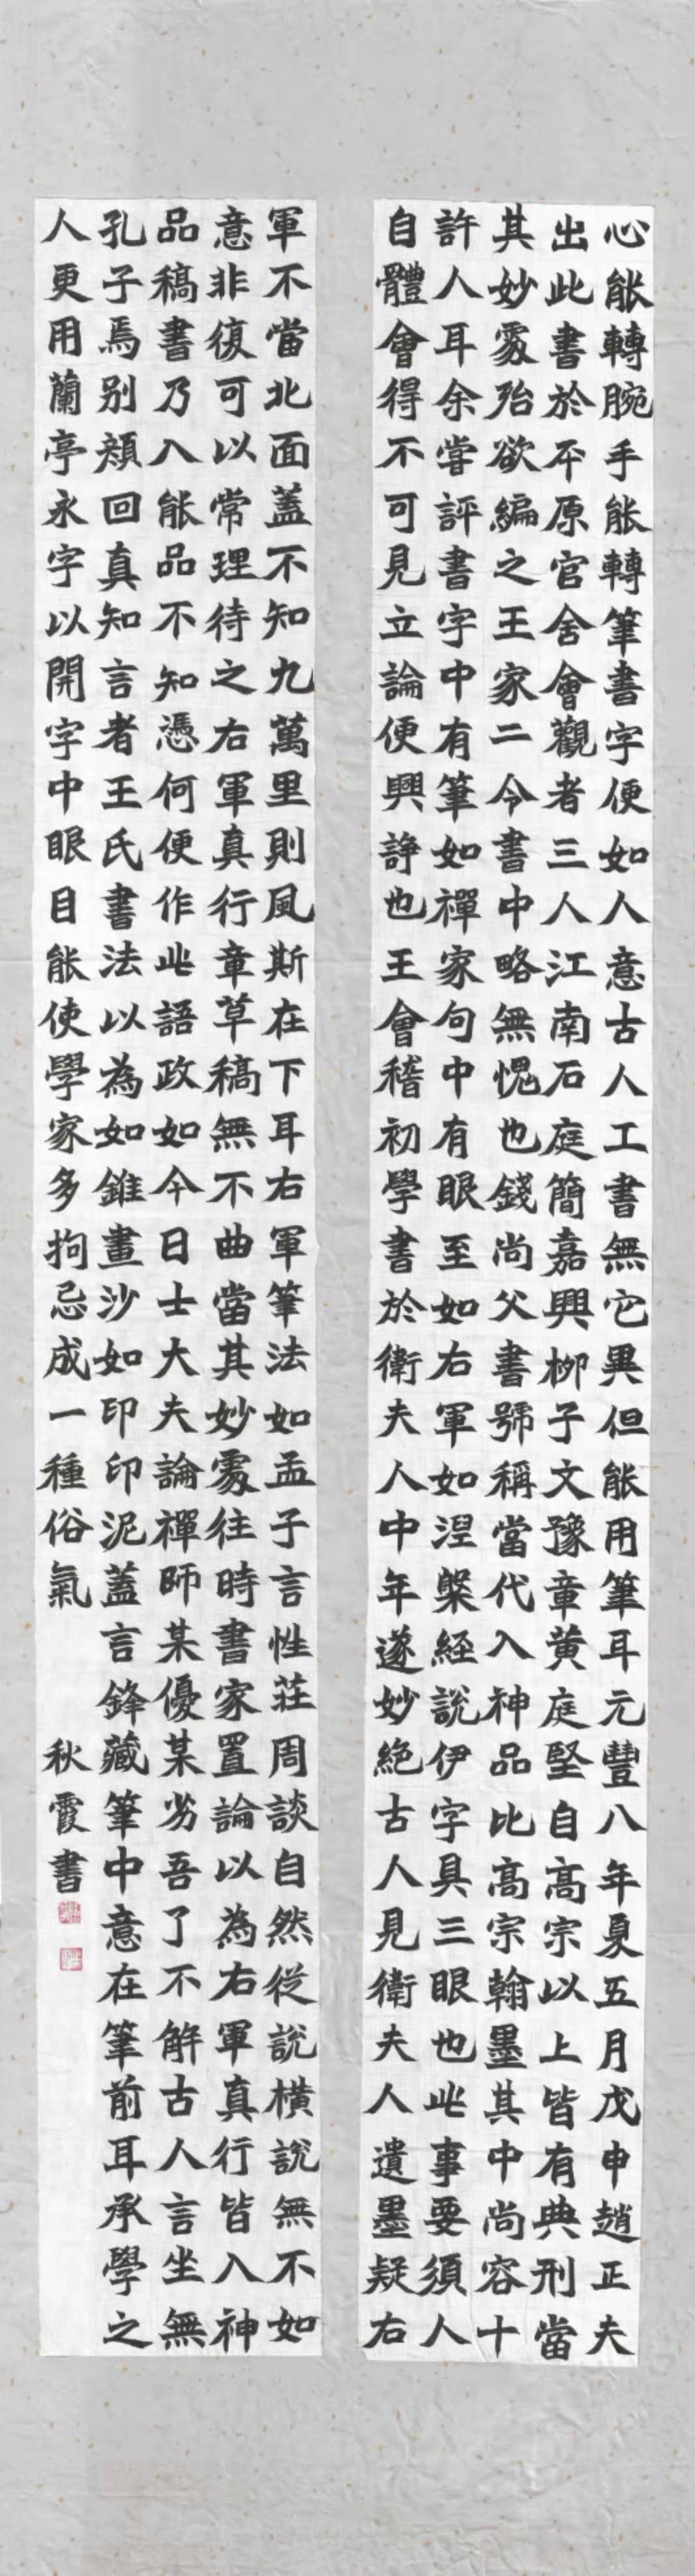 心能轉腕手能轉筆書字便如人意古人工書無它異但能用筆耳元豐八年夏五月戊申趙正夫
出此書於平原官舍會觀者三人江南石庭簡嘉興柳子文豫章黄庭堅自高宗以上皆有典刑當
其妙處殆欲編之王家二令書中略無愧也錢尚父書號稱當代入神品比高宗翰墨其中尚容十
許人耳余嘗評書字中有筆如禪家句中有眼至如右軍如涅槃經説伊字具三眼也此事要須人
自體會得不可見立論便興諍也王會稽初學書於衛夫人中年遂妙絶古人見衛夫人遺墨疑右
軍不當北面蓋不知九萬里則風斯在下耳右軍筆法如孟子言性莊周談自然從説横説無不如
意非復可以常理待之右軍真行章草稿無不曲當其妙處往時書家置論以為右軍真行皆入神
品稿書乃入能品不知憑何便作此語政如今日士大夫論禪師某優某劣吾了不解古人言坐無
孔子焉别顔回真知言者王氏書法以為如錐畫沙如印印泥蓋言鋒藏筆中意在筆前耳承學之
人更用蘭亭永字以開字中眼目能使學家多拘忌成一種俗氣
秋霞書